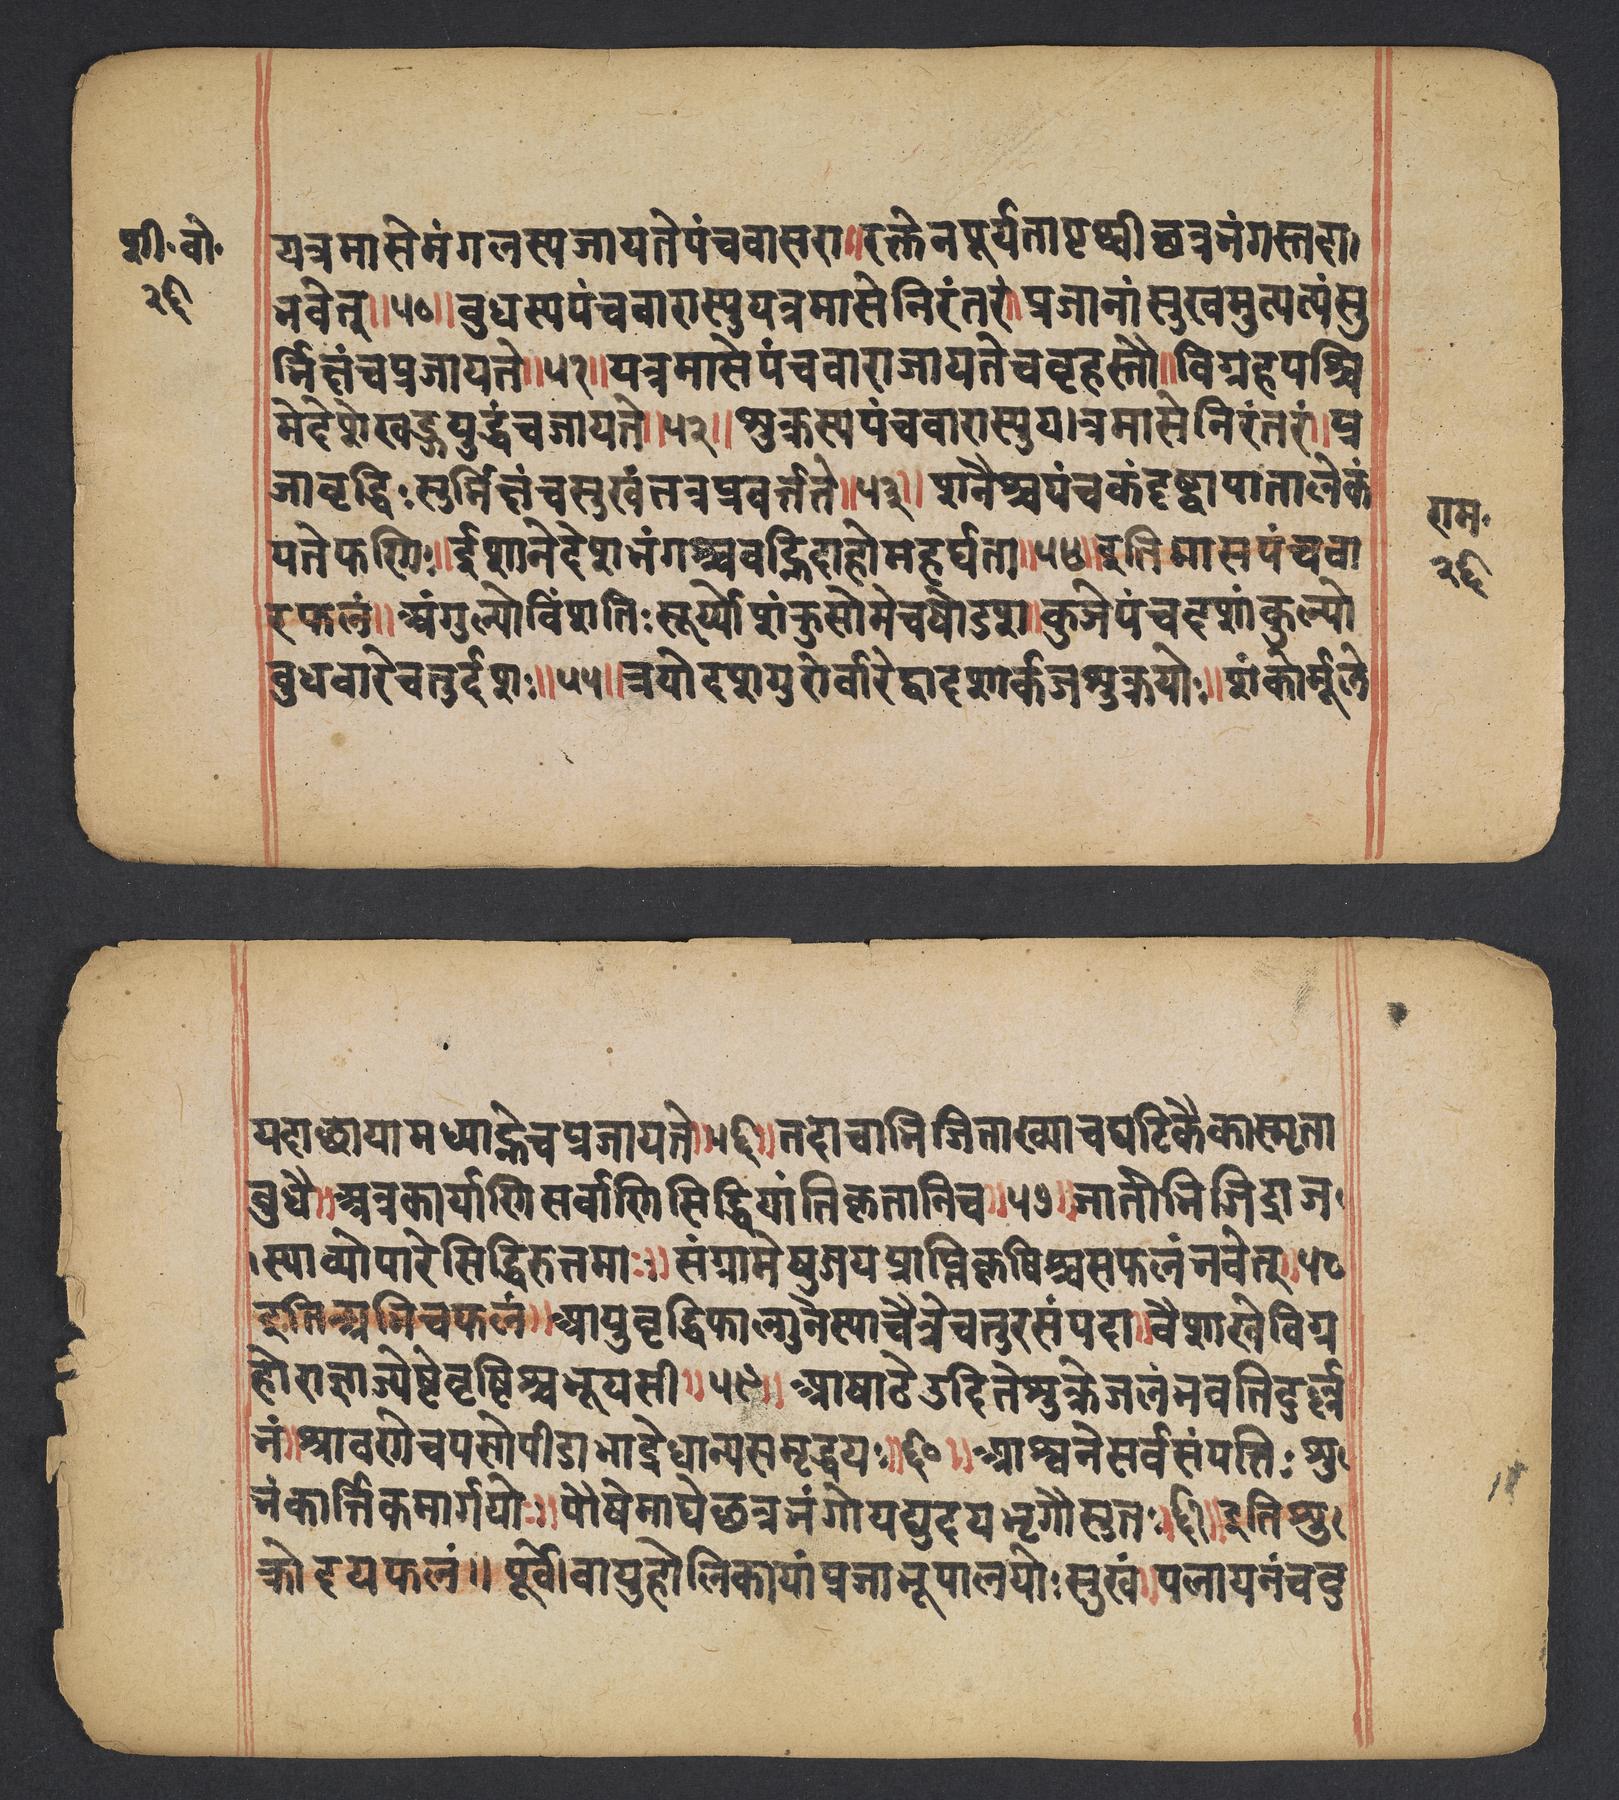 शी॰वो॰
२६
यत्रमासेमंगलस्यजायतेपंचवासरा॥रक्तेनपूर्यतापृथ्वीछत्रभंगस्तदा
भवेत्॥५०॥बुधस्यपंचवारास्युयत्रमासेनिरंतरं॥प्रजानांसुखमुत्पत्यंसु
र्भिक्षंचप्रजायते॥५१॥यत्रमासेपंचवाराजायतेचवृहस्तौ॥विग्रहपश्चि
मेदेशेखङ्गयुद्धंचजायते॥५२॥शुक्रस्यपंचवारास्युय।त्रमासेनिरंतरं॥प्र
जावृद्धिःसुर्भिक्षंचसुखंतत्रप्रवर्त्तते॥५३॥शनैश्चपंचकंदृष्ट्वापातालेकं
पतेफणिः॥ईशानेदेशभंगश्चवह्निदाहोमहर्घता॥५४॥इतिमासपंचवा
रफलं॥अंगुल्योविंशतिःसूर्य्योशंकुसोमेचषोडश॥कुजेपंचदशांकुल्यो
बुधवारेचतुर्दशः॥५५॥त्रयोदशगुरोर्वारेद्वादशार्कजशुक्रयोः॥शंकोर्मूले
राम॰
२६
यदाछायामध्याह्नेचप्रजायते॥५६॥तदाचाभिजिताख्याचघटिकैकास्मृता
बुधै॥अत्रकार्याणिसर्वाणिसिद्धियांतिकृतानिच॥५७॥जातोभिजिद्राज
स्याव्योपारेसिद्धिरुत्तमाः॥संग्रामेषुजयप्राप्तिकृषिश्चसफलंभवेत्॥५८
इतिअभिचफलं॥आयुवृद्धिफाल्गुनैस्याचैत्रेचतुरसंपदा॥वैशाखेविग्र
होराज्ञाज्येष्टेवृष्टिश्चभूयसी॥५९॥आषाढेऽदितेशुक्रेजलंभवतिदुर्ल्ल
भं॥श्रावणेचपसोपीडाभाद्रेधान्यसमृद्धयः॥६०॥आश्वनेसर्वसंपत्तिःशु
भंकार्त्तिकमार्गयोः॥पौषेमाघेछत्रभंगोयद्युदयभृगौसुतः॥६१॥इतिशु
क्रोदयफलं॥पूर्वे।वायुहोलिकायांप्रजाभूपालयोःसुखं॥पलायनंचदु